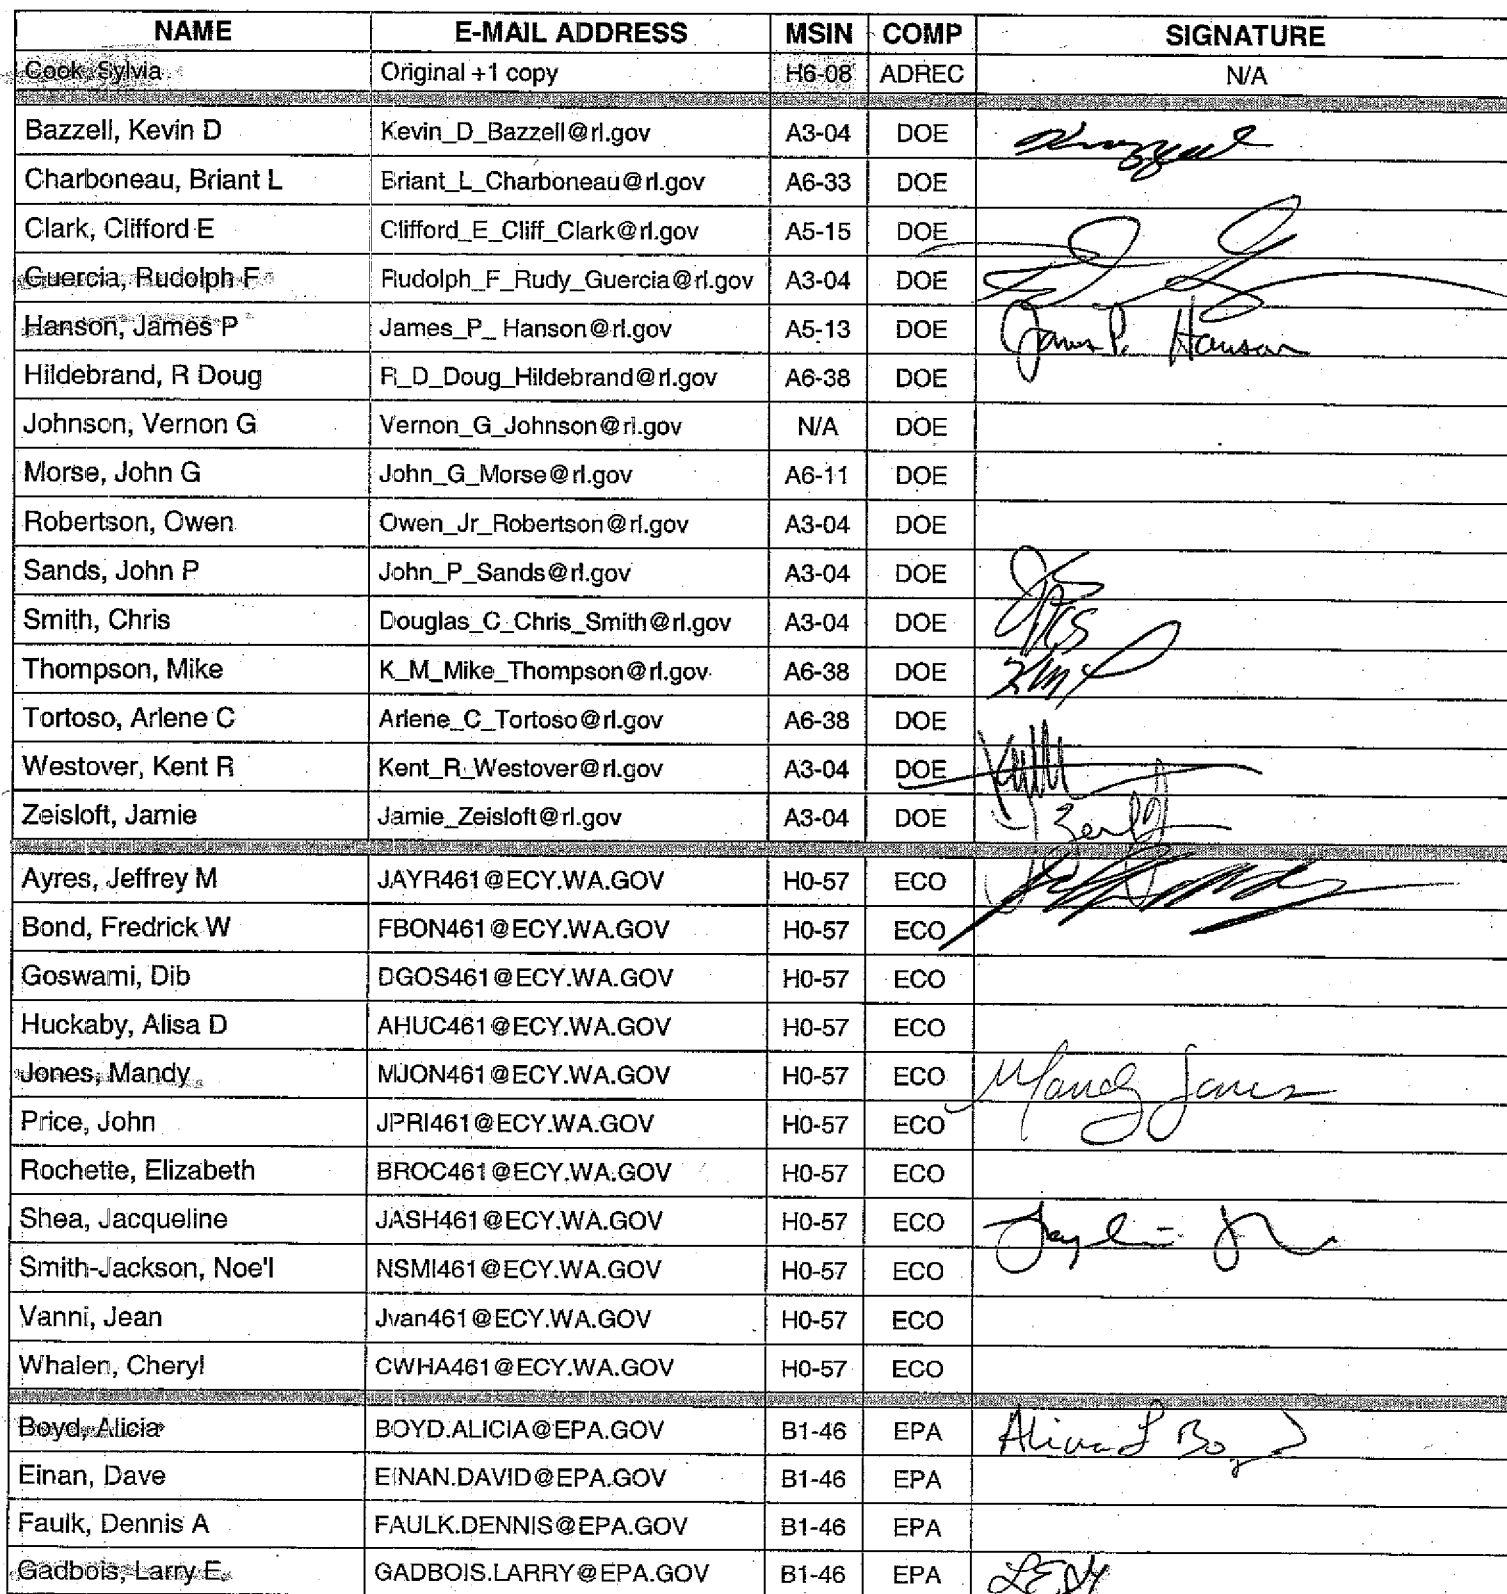 NAME E-MAIL ADDRESS MSIN COMP SIGNATURE
Cook, Sylvia Original +1 copy H6-08 ADREC N/A
Bazzell, Kevin D Kevin_D_Bazzell@rl.gov A3-04 DOE
Charboneau, Briant L Briant_L_Charboneau@rl.gov A6-33 DOE
Clark, Clifford E Clifford_E_Cliff_Clark@rl.gov A5-15 DOE
Guercia, Rudolph F Rudolph_F_Rudy_Guercia@rl.gov A3-04 DOE
Hanson, James P James_P_ Hanson@rl.gov A5-13 DOE James P. Hanson
Hildebrand, R Doug R_D_Doug_Hildebrand@rl.gov A6-38 DOE
Johnson, Vernon G Vernon_G_Johnson@rl.gov N/A DOE
Morse, John G John_G_Morse@rl.gov A6-11 DOE
Robertson, Owen Owen_Jr_Robertson@rl.gov A3-04 DOE
Sands, John P John_P_Sands@rl.gov A3-04 DOE
Smith, Chris Douglas_C_Chris_Smith@rl.gov A3-04 DOE
Thompson, Mike K_M_Mike_Thompson@rl.gov A6-38 DOE
Tortoso, Arlene C Arlene_C_Tortoso@rl.gov A6-38 DOE
Westover, Kent R Kent_R_Westover@rl.gov A3-04 DOE
Zeisloft, Jamie Jamie_Zeisloft@rl.gov A3-04 DOE
Ayres, Jeffrey M JAYR461@ECY.WA.GOV H0-57 ECO
Bond, Fredrick W FBON461@ECY.WA.GOV H0-57 ECO
Goswami, Dib DGOS461@ECY.WA.GOV H0-57 ECO
Huckaby, Alisa D AHUC461@ECY.WA.GOV H0-57 ECO
Jones, Mandy MJON461@ECY.WA.GOV H0-57 ECO Mandy Jones
Price, John JPRI461@ECY.WA.GOV H0-57 ECO
Rochette, Elizabeth BROC461@ECY.WA.GOV H0-57 ECO
Shea, Jacqueline JASH461@ECY.WA.GOV H0-57 ECO
Smith-Jackson, Noe'l NSMI461@ECY.WA.GOV H0-57 ECO
Vanni, Jean Jvan461@ECY.WA.GOV H0-57 ECO
Whalen, Cheryl CWHA461@ECY.WA.GOV H0-57 ECO
Boyd, Alicia BOYD.ALICIA@EPA.GOV B1-46 EPA Alicia L Boyd
Einan, Dave EINAN.DAVID@EPA.GOV B1-46 EPA
Faulk, Dennis A FAULK.DENNIS@EPA.GOV B1-46 EPA
Gadbois, Larry E. GADBOIS.LARRY@EPA.GOV B1-46 EPA